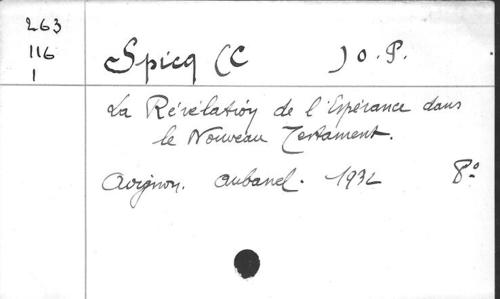 263
116
1
Spicq (C ) O.P.
La Révélation de l'Espérance dans
le Nouveau Testament.
Avignon. Aubanel. 1932 8°